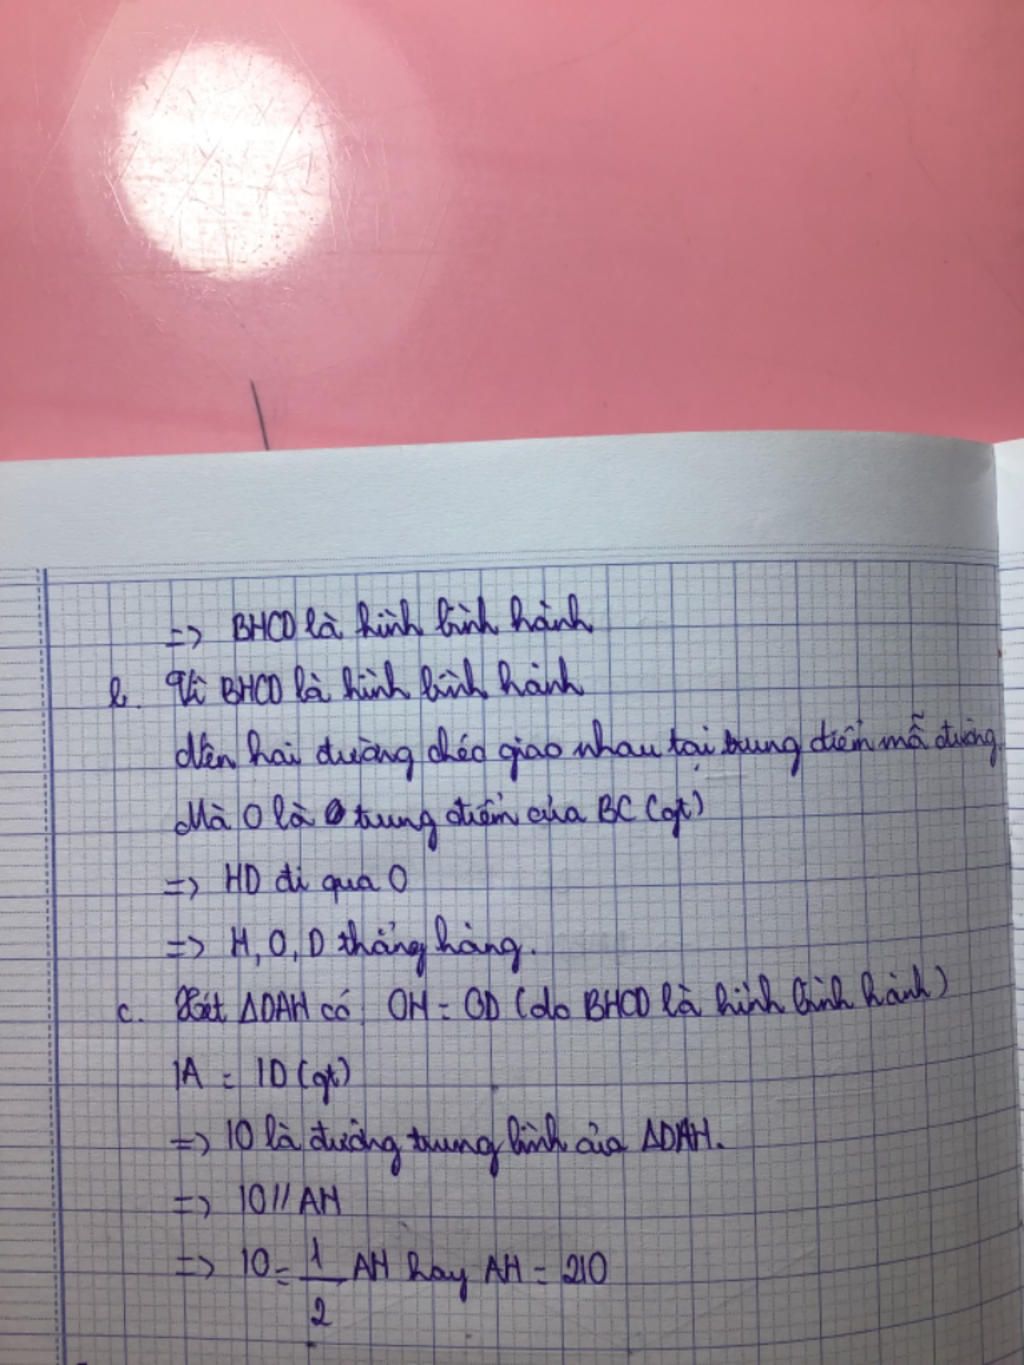 => BHCD là hình bình hành
b. Vì BHCD là hình bình hành
nên hai đường chéo giao nhau tại trung điểm mỗ đường.
Mà O là trung điểm của BC (gt)
=> HD đi qua O
=> H, O, D thẳng hàng.
c. Xét ΔDAH có OH = OD (do BHCD là hình bình hành)
IA = ID (gt)
=> IO là đường trung bình của ΔDAH.
=> IO // AH
=> IO = 1/2 AH hay AH = 2IO